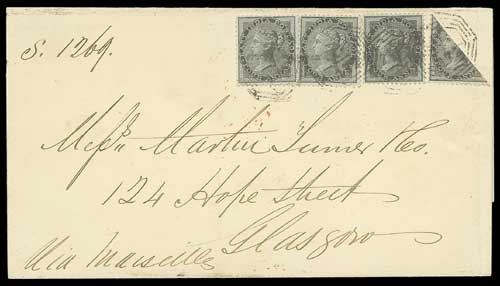 S. 1269.
Messrs Martin Turner & Co.
124 Hope Street
Glasgow
Via Marseilles